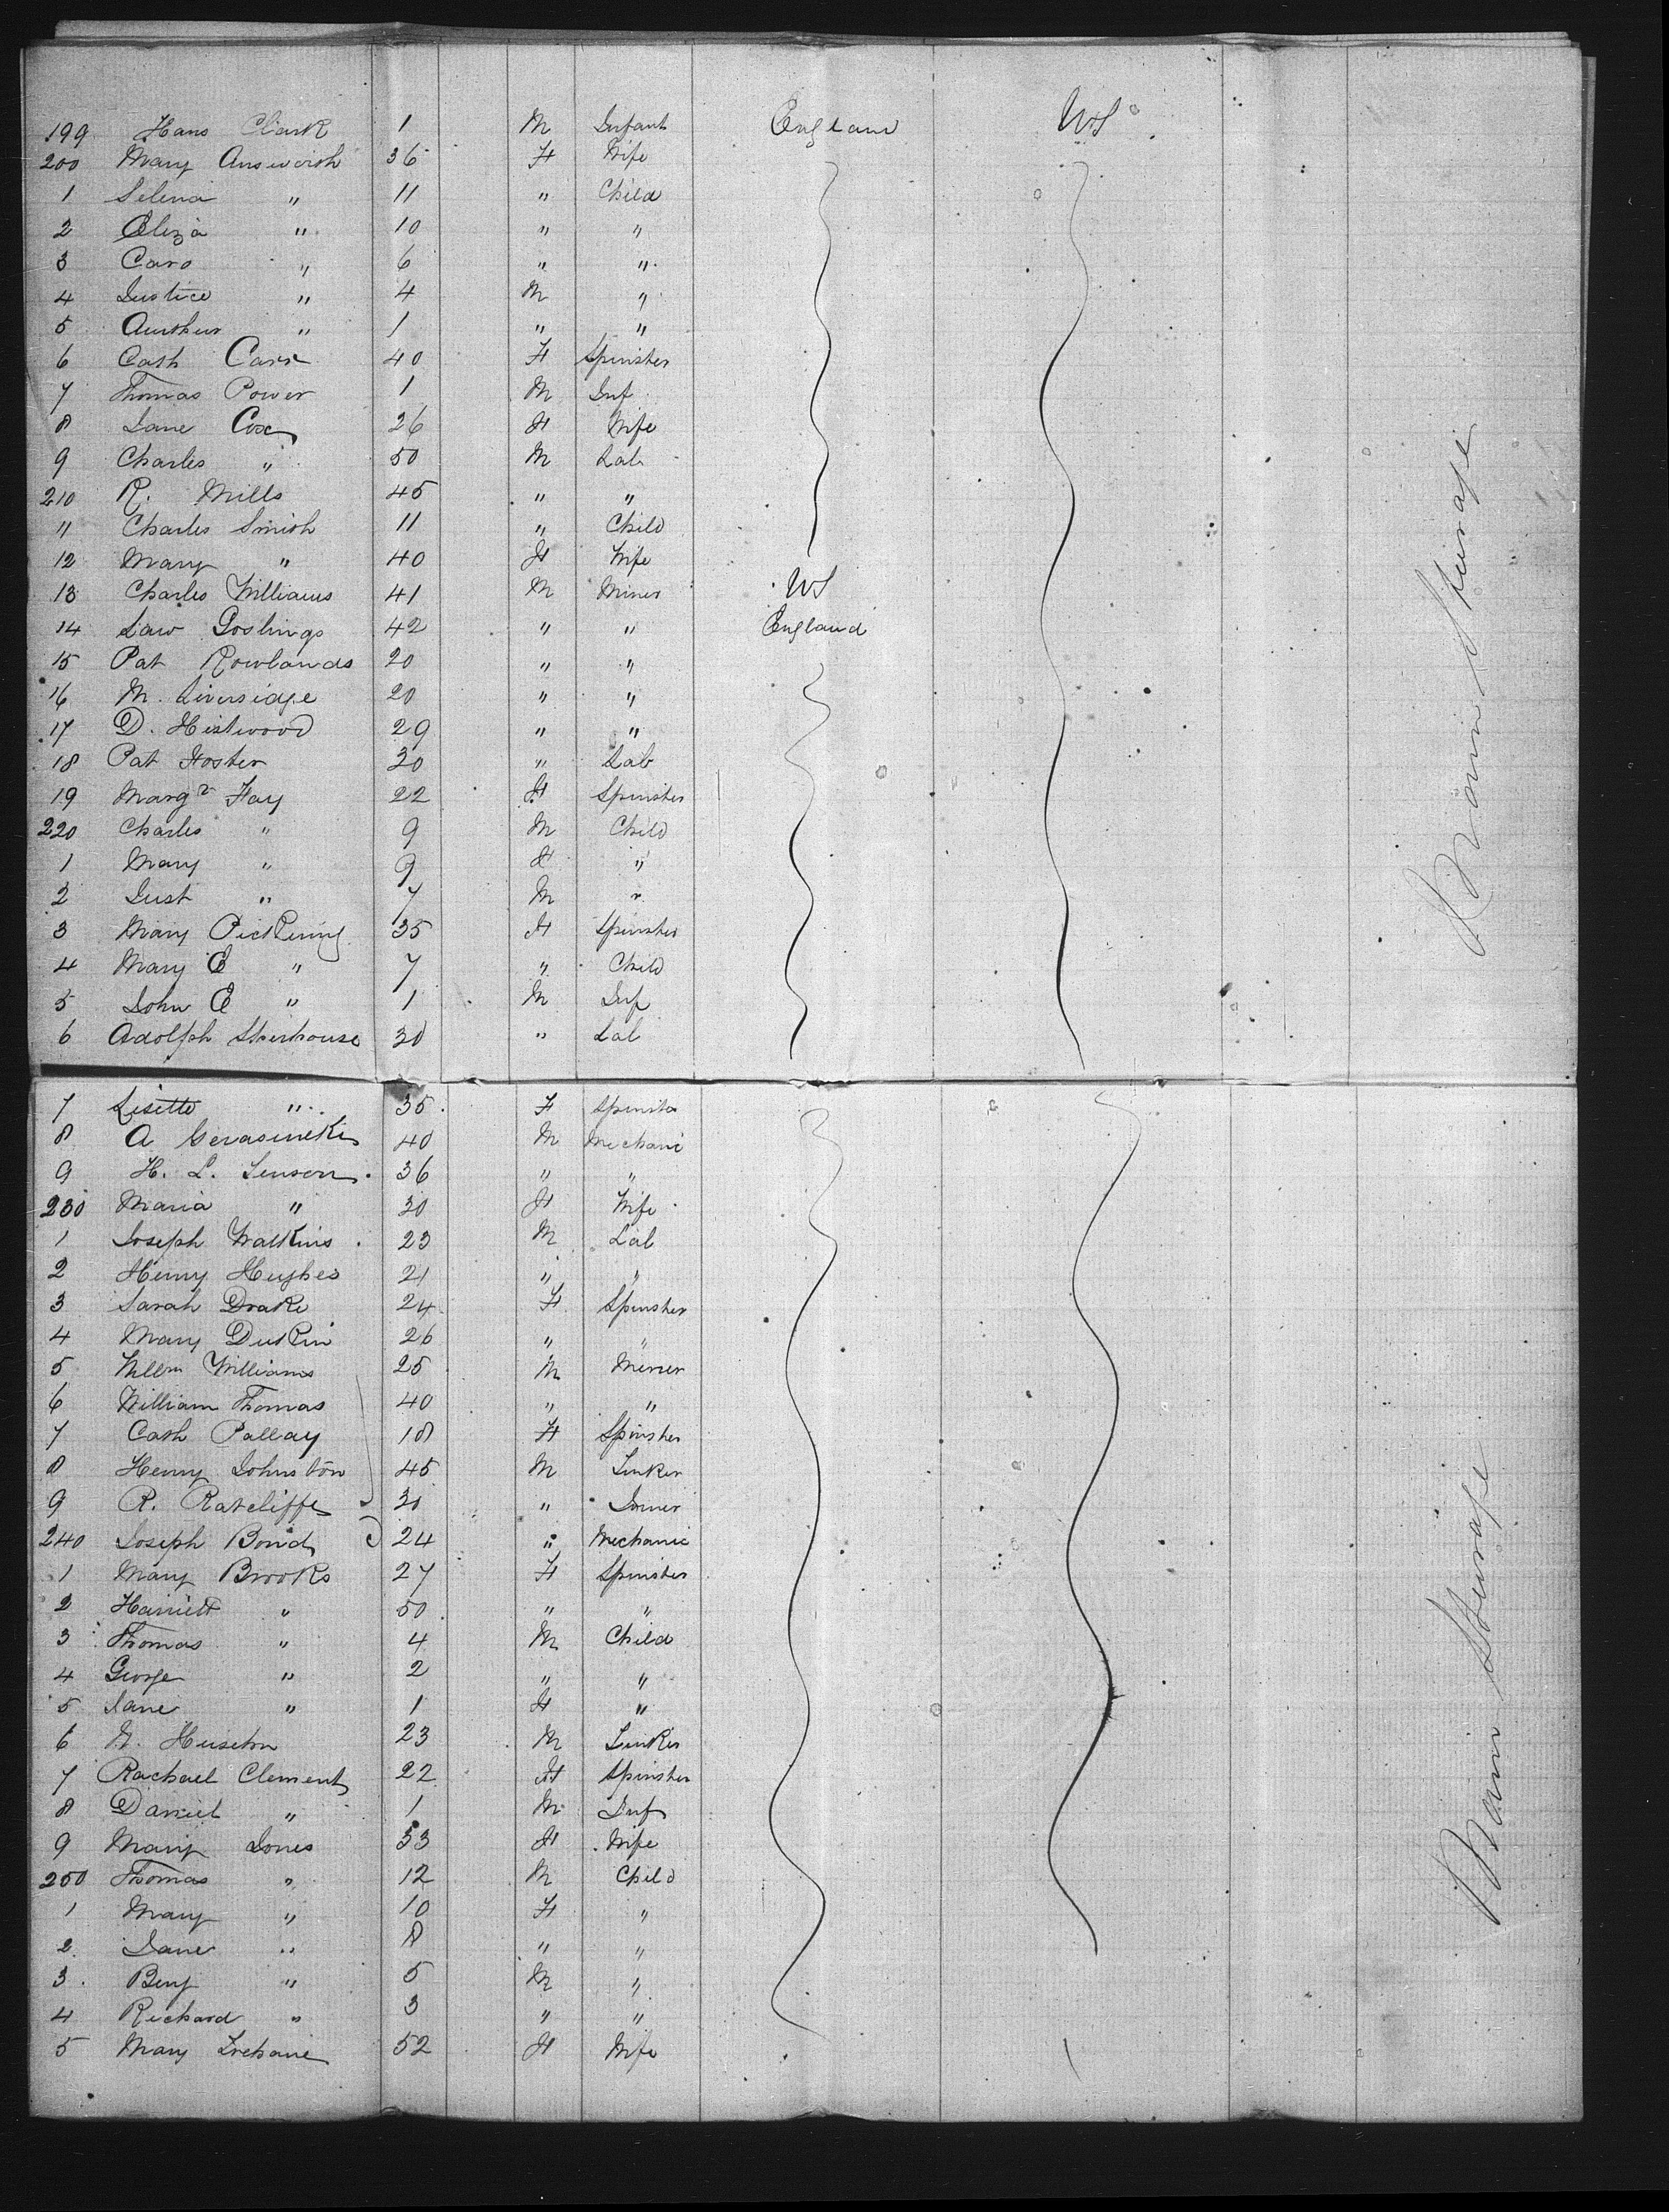 199 Hans Clark 1 M Infant England US
200 Mary Answorth 36 F Wife
1 Selena " 11 " Child
2 Eliza " 10 " "
3 Caro " 6 " "
4 Justice " 4 M "
5 Aurthur " 1 " "
6 Cath Carr 40 F Spinster
7 Thomas Power 1 M Inf
8 Jane Cox 26 F Wife
9 Charles " 50 M Lab
210 R. Mills 45 " "
11 Charles Smith 11 " Child
12 Mary " 40 F Wife
13 Charles Williams 41 M Miner US
14 Law Goslings 42 " " England
15 Pat Rowlands 20 " "
16 M. Liversidge 20 " "
17 D. Hestwood 29 " "
18 Pat Foster 30 " Lab
19 Margr Fay 22 F Spinster
220 Charles " 9 M Child
1 Mary " 9 F "
2 Just " 7 M "
3 Mary Pickering 35 F Spinster
4 Mary E " 7 " Child
5 John E " 1 M Inf
6 Adolph 30 " Lab
7 Lisette " 35 F Spinster
8 A 40 M Mechanic
9 H. L. Jenson 36 " "
230 Maria " 30 F Wife
1 Joseph Watkins 23 M Lab
2 Henry Hughes 21 " "
3 Sarah Drake 24 F Spinster
4 Mary Durkin 26 " "
5 Willm Williams 25 M Miner
6 William Thomas 40 " "
7 Cath Pallay 18 F Spinster
8 Henry Johnston 45 M Tinker
9 R. Ratcliffe 30 " Joiner
240 Joseph Bond 24 " Mechanic
1 Mary Brooks 27 F Spinster
2 Harriett " 50 " "
3 Thomas " 4 M Child
4 George " 2 " "
5 Jane " 1 F "
6 23 M Tinker
7 Rachael Clement 22 F Spinster
8 Daniel " 1 M Inf
9 Mary Jones 33 F Wife
250 Thomas " 12 M Child
1 Mary " 10 F "
2 Jane " 8 " "
3 Benj " 5 M "
4 Richard " 3 " "
5 Mary 52 F Wife
Main Steerage
Main Steerage